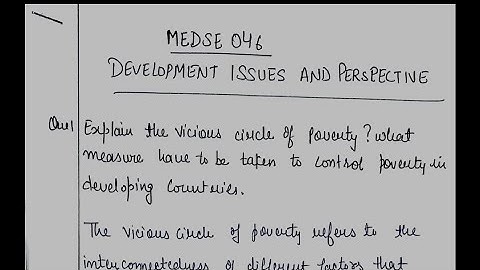 MEDSE 046
DEVELOPMENT ISSUES AND PERSPECTIVE
Que1 Explain the vicious circle of poverty? what
measure have to be taken to control poverty in
developing countries.
The vicious circle of poverty refers to the
interconnectedness of different factors that